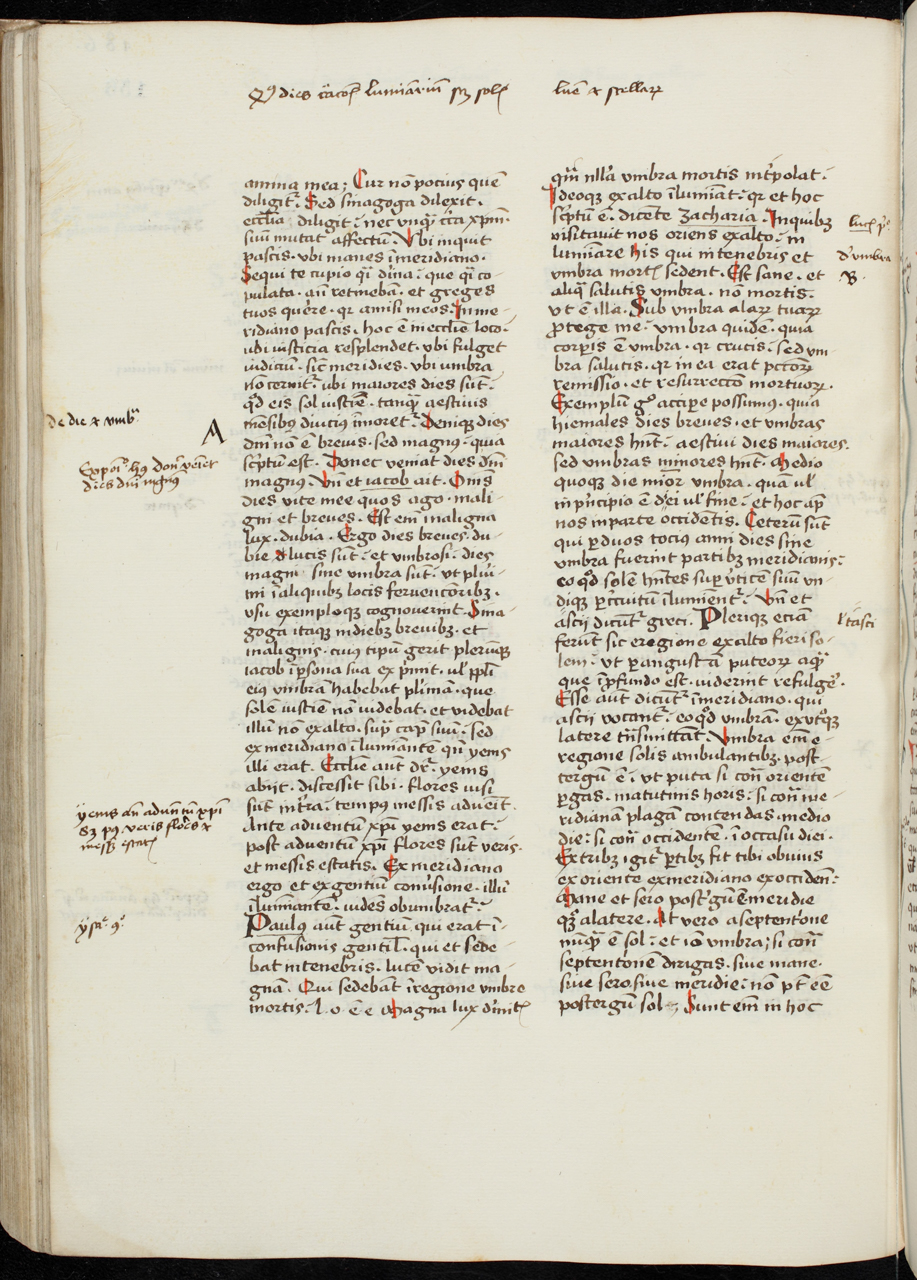 lune et stellarum
anima mea; Cur no pocius que
diligitr. Sed sinagoga dilexit.
ecclia diligit: nec unqua circa xpm
suu mutat affectu. Ubi inquit
pascis. ubi manes i meridiano.
Sequi te cupio
pulata. an retineba. et greges
tuos quere. qr amisi meos. In me-
ridiano pascis. hoc e in ecclie loco.
ubi iusticia resplendet. ubi fulget
iudiciu. sic meridies. ubi umbra
no cernitr. ubi maiores dies sut.
qd eis sol iusticie. tanqua aestivis
mesibus diucius imoretr. Deniqe dies
dni no e brevis. sed magnus. quia
sciptu est. Donec veniat dies dni
magnus. Un et iacob ait. Omis
dies vite mee quos ago. mali-
gni et breves. Est eni maligna
lux. dubia. Ergo dies breves. du-
bie lucis sut. et umbrosi. dies
magni sine umbra sut. ut pluri-
mi i aliquibz locis ferventioribz.
usu exemploqz cognoverint. Sina-
goga itaque in diebz brevibz. et
malignis. cuius tipu gerit plerumqe
iacob i psona sua exprimit. ul ppli
eius umbra habebat plima. que
sole iusticie no videbat. et videbat
illu no exalto. supra caput suu: sed
ex meridiano iluminante qn yems
illi erat. Ecclie aut dr. yems
abijt. discessit sibi. flores visi
sut in tra. tempus messis adveit.
Ante adventu xpi yems erat:
post adventu xpi flores sut veris.
et messis estatis. Ex meridiano
ergo et ex gentiu conversione. illu
iluminante. vides obumbratr.
Paulus aut gentiu. qui erat i-
confusionis gentil. qui et sede-
bat in tenebris. luce vidit ma-
gna. Qui sedebat i regione umbre
mortis. l. o. e. e Magna lux
qua nlla umbra mortis interpolat.
Ideoqz exalto iluminat. qr et hoc
sciptu e. dicete Zacharia. In quibz
visitavit nos oriens exalto: in
luminare his qui in tenebris et
umbra mortis sedent. Est sane. et
aliqua salutis umbra. no mortis.
ut e illa. Sub umbra alarum tuarum
protege me. umbra quide. quia
corpis e umbra. qr crucis. sed um
bra salutis. qr in ea erat pctorum
remissio. et resurrectio mortuorum.
Exemplu go accipe possumus. quia
hiemales dies breves. et umbras
maiores hnt. aestivi dies maiores.
sed umbras minores hnt. Medio
quoque die minor umbra. qua ul
in principio e diei ul fine: et hoc apd
nos in parte occidentis. Ceteru sut
qui per duos tocius anni dies sine
umbra fuerint partibz meridianis:
eo qd sole hntes super vtice suu un-
diqz per circuitu iluminentr. Un et
ascii dicut greci. Plerique ecia
ferut sic e regione exalto fieri so-
lem: ut per angusta puteorum aqua
que i pfundo est. viderint refulge.
Esse aut dicutr i meridiano. qui
ascii vocant. eo qd umbra. ex utroqz
latere
regione solis ambulantibz. post
tergu e. ut puta si con oriente
pergas. matutinis horis. si con me-
ridiana plaga contendas. medio
die. si con occidente. i occasu diei.
Ex tribz igitr ptibz fit tibi obvius
ex oriente ex meridiano ex occidente.
Mane et sero post tergu e meridie
qz a latere. At vero a septentrione
nunqua e sol: et io umbra; si con
septentrione dirigas. sive mane.
sive sero. sive meridie: no pt ee
post tergu sol. Sunt eni in hoc
de die et umbra
A
dies dni magnus
yems an adventu xpi
sz post veris flores et
messis estatis
luce p
de umbra
B.